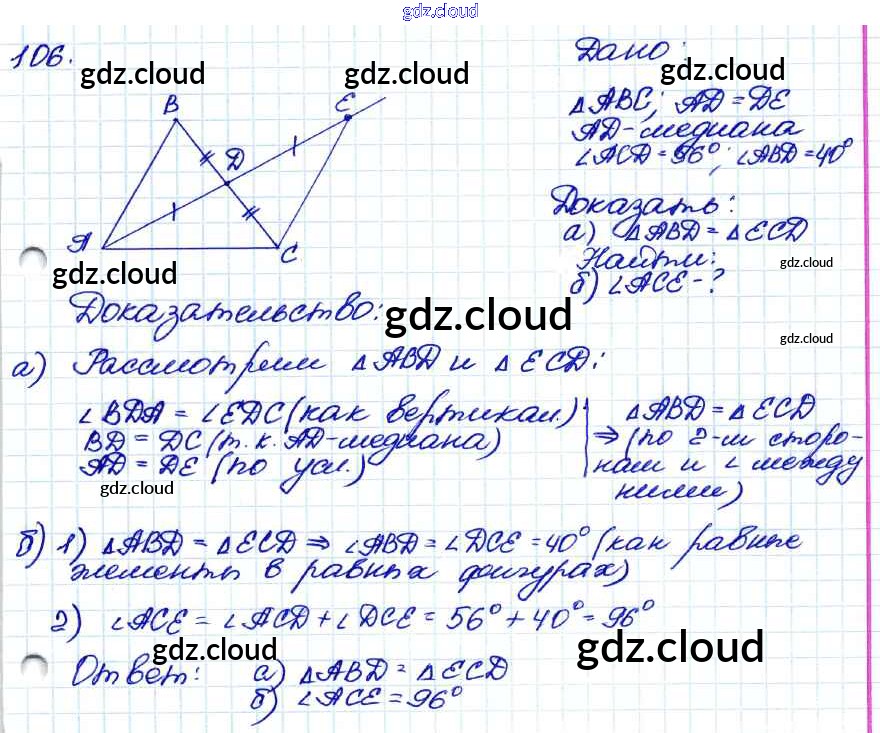 gdz.cloud
106.
gdz.cloud
gdz.cloud
Дано:
gdz.cloud
△ABC; AD = DE
AD-медиана
∠ACD = 56°; ∠ABD = 40°
Доказать:
а) △ABD = △ECD
Найти:
б) ∠ACE - ?
B
E
D
A
C
gdz.cloud
gdz.cloud
Доказательство:
gdz.cloud
gdz.cloud
а) Рассмотрим △ABD и △ECD:
∠BDA = ∠EDC (как вертикал.)
BD = DC (т.к. AD-медиана)
AD = DE (по усл.)
⇒ △ABD = △ECD
(по 2-м сторо-
нам и ∠ между
ними)
gdz.cloud
gdz.cloud
б) 1) △ABD = △ECD ⇒ ∠ABD = ∠DCE = 40° (как равные
элементы в равных фигурах)
2) ∠ACE = ∠ACD + ∠DCE = 56° + 40° = 96°
gdz.cloud
gdz.cloud
Ответ: а) △ABD = △ECD
б) ∠ACE = 96°
gdz.cloud